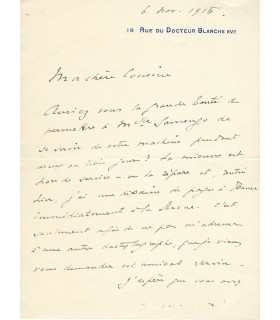 6 nov. 1916.
19 RUE DU DOCTEUR BLANCHE XVIE
Ma chère Cousine
Auriez vous la grande bonté de
permettre à Mlle de
se servir de votre machine pendant
deux ou trois jours? La mienne est
hors de service – on la répare et, outre
j'ai une dizaine de pages à donner
immédiatement à la Revue. C'est
seulement afin de ne pas m'adresser
à une autre dactylographe, que je viens
vous demander cet amical service.
J'espère que vous avez